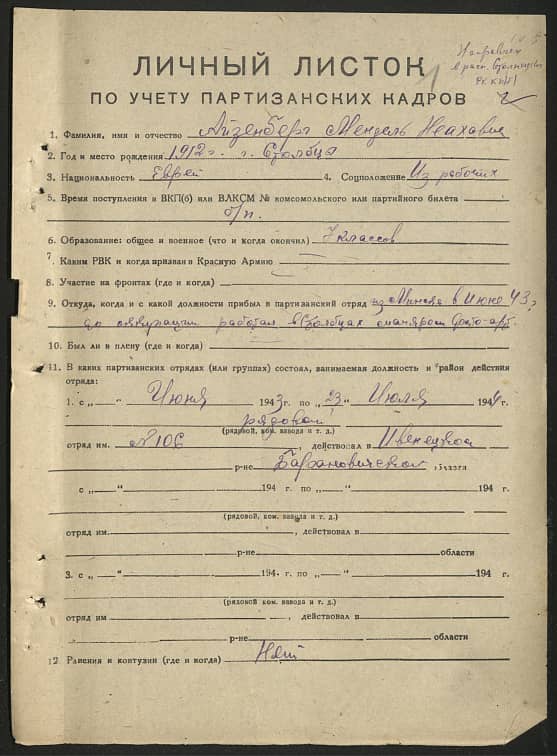 Направлен
в расп. Столбцовск
РК КП(б)
ЛИЧНЫЙ ЛИСТОК
ПО УЧЕТУ ПАРТИЗАНСКИХ КАДРОВ
1. Фамилия, имя и отчество Айзенберг Мендель
2. Год и место рождения 1912 г. г. Столбцы
3. Национальность Еврей 4. Соцположение Из рабочих
5. Время поступления в ВКП(б) или ВЛКСМ № комсомольского или партийного билета
б/п.
6. Образование: общее и военное (что и когда окончил) 7 классов
7. Каким РВК и когда призван в Красную Армию
8. Участие на фронтах (где и когда)
9. Откуда, когда и с какой должности прибыл в партизанский отряд из Минска в Июне 43 г
до оккупации работал в Столбцах
10. Был ли в плену (где и когда)
11. В каких партизанских отрядах (или группах) состоял, занимаемая должность и район действия
отряда:
1. с „ “ Июня 1943 г. по „23“ Июля 1944 г.
рядовой
(рядовой, ком. взвода и т. д.)
отряд им. №106, действовал в Ивенецком
р-не Барановической области
с „ “ 194 г. по „ “ 194 г.
(рядовой, ком. взвода и т. д.)
отряд им. , действовал в
р-не области
3. с „ “ 194 г. по „ “ 194 г.
(рядовой ком. взвода и т. д.)
отряд им , действовал в
р-не области
12 Ранения и контузии (где и когда) Нет